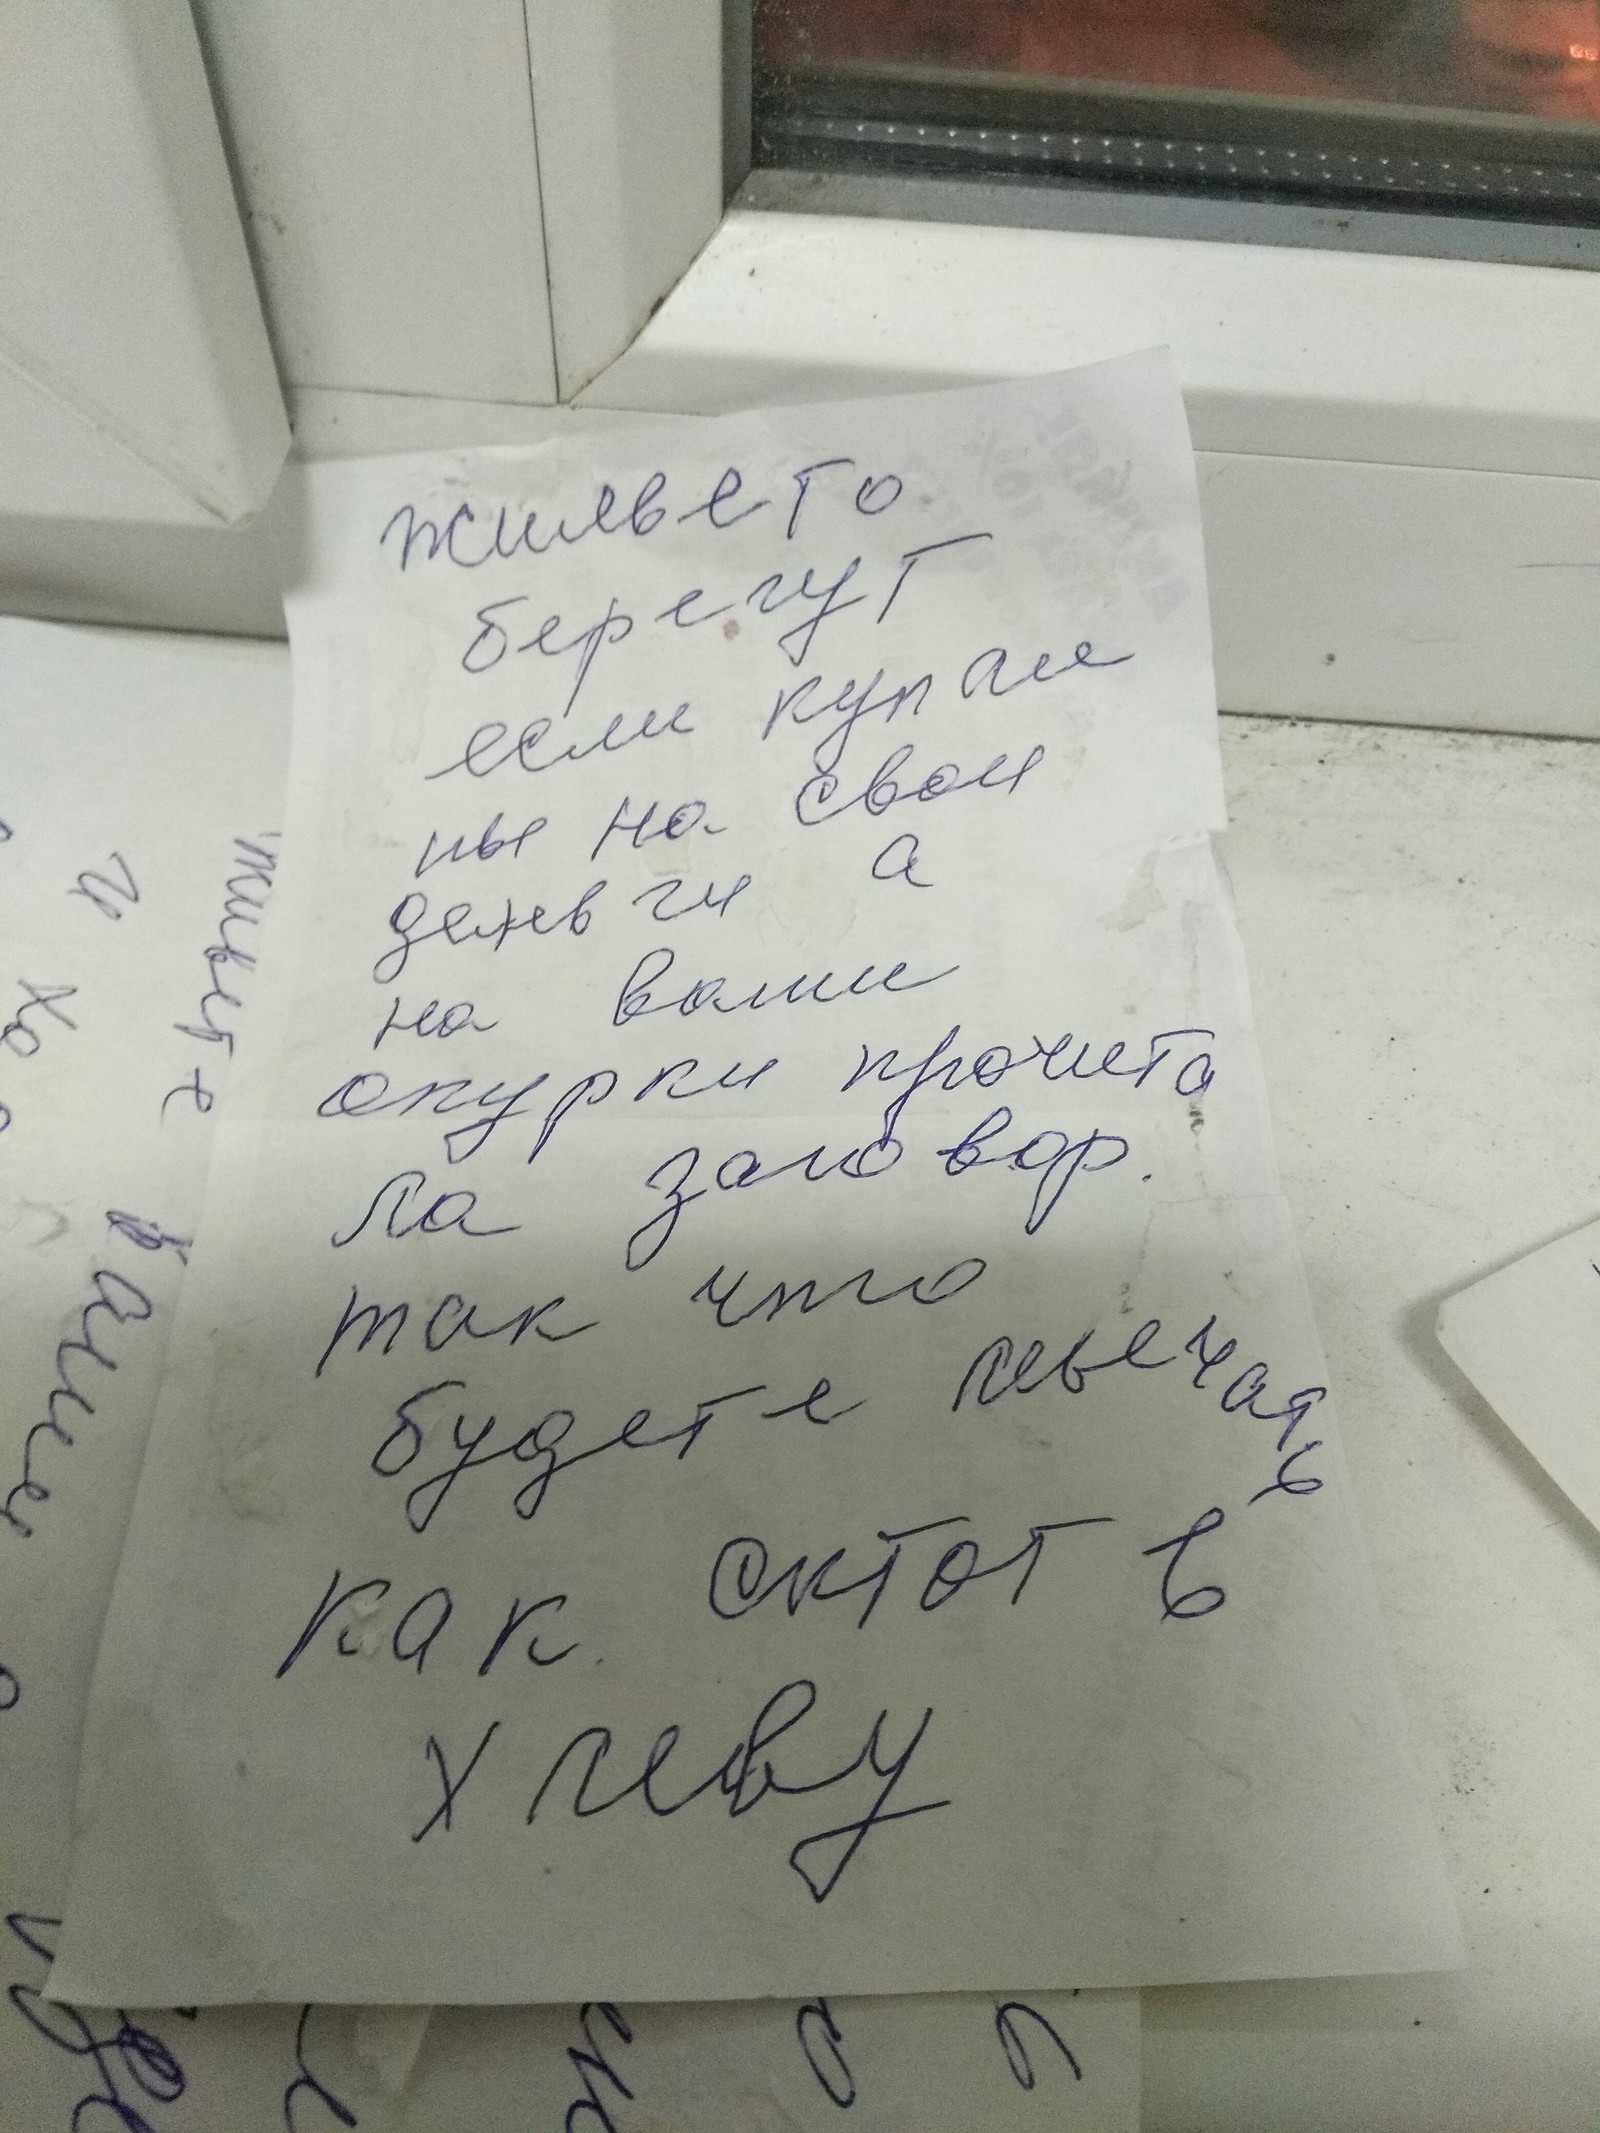 жилвето
берегут
если купле
ны на свои
деньги а
на ваши
окурки прочита
ла заговор.
так что
будете мычать
как сктот в
хлеву
живете
и